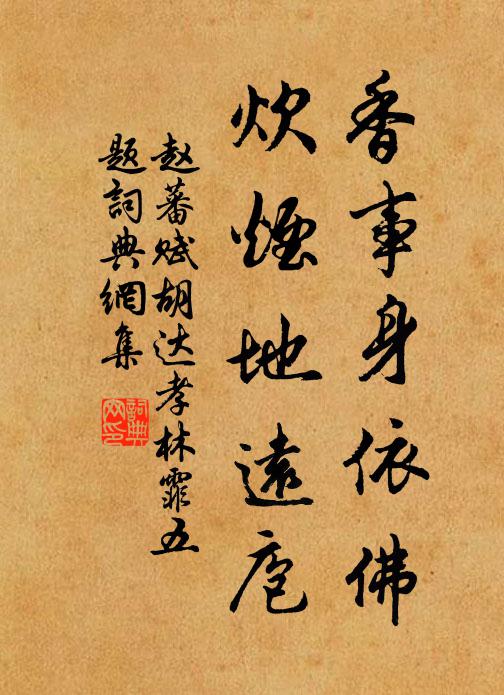 香事身依佛
炊烟地远庖
赵蕃赋胡达孝林霏五
题词典网集
词典
网印